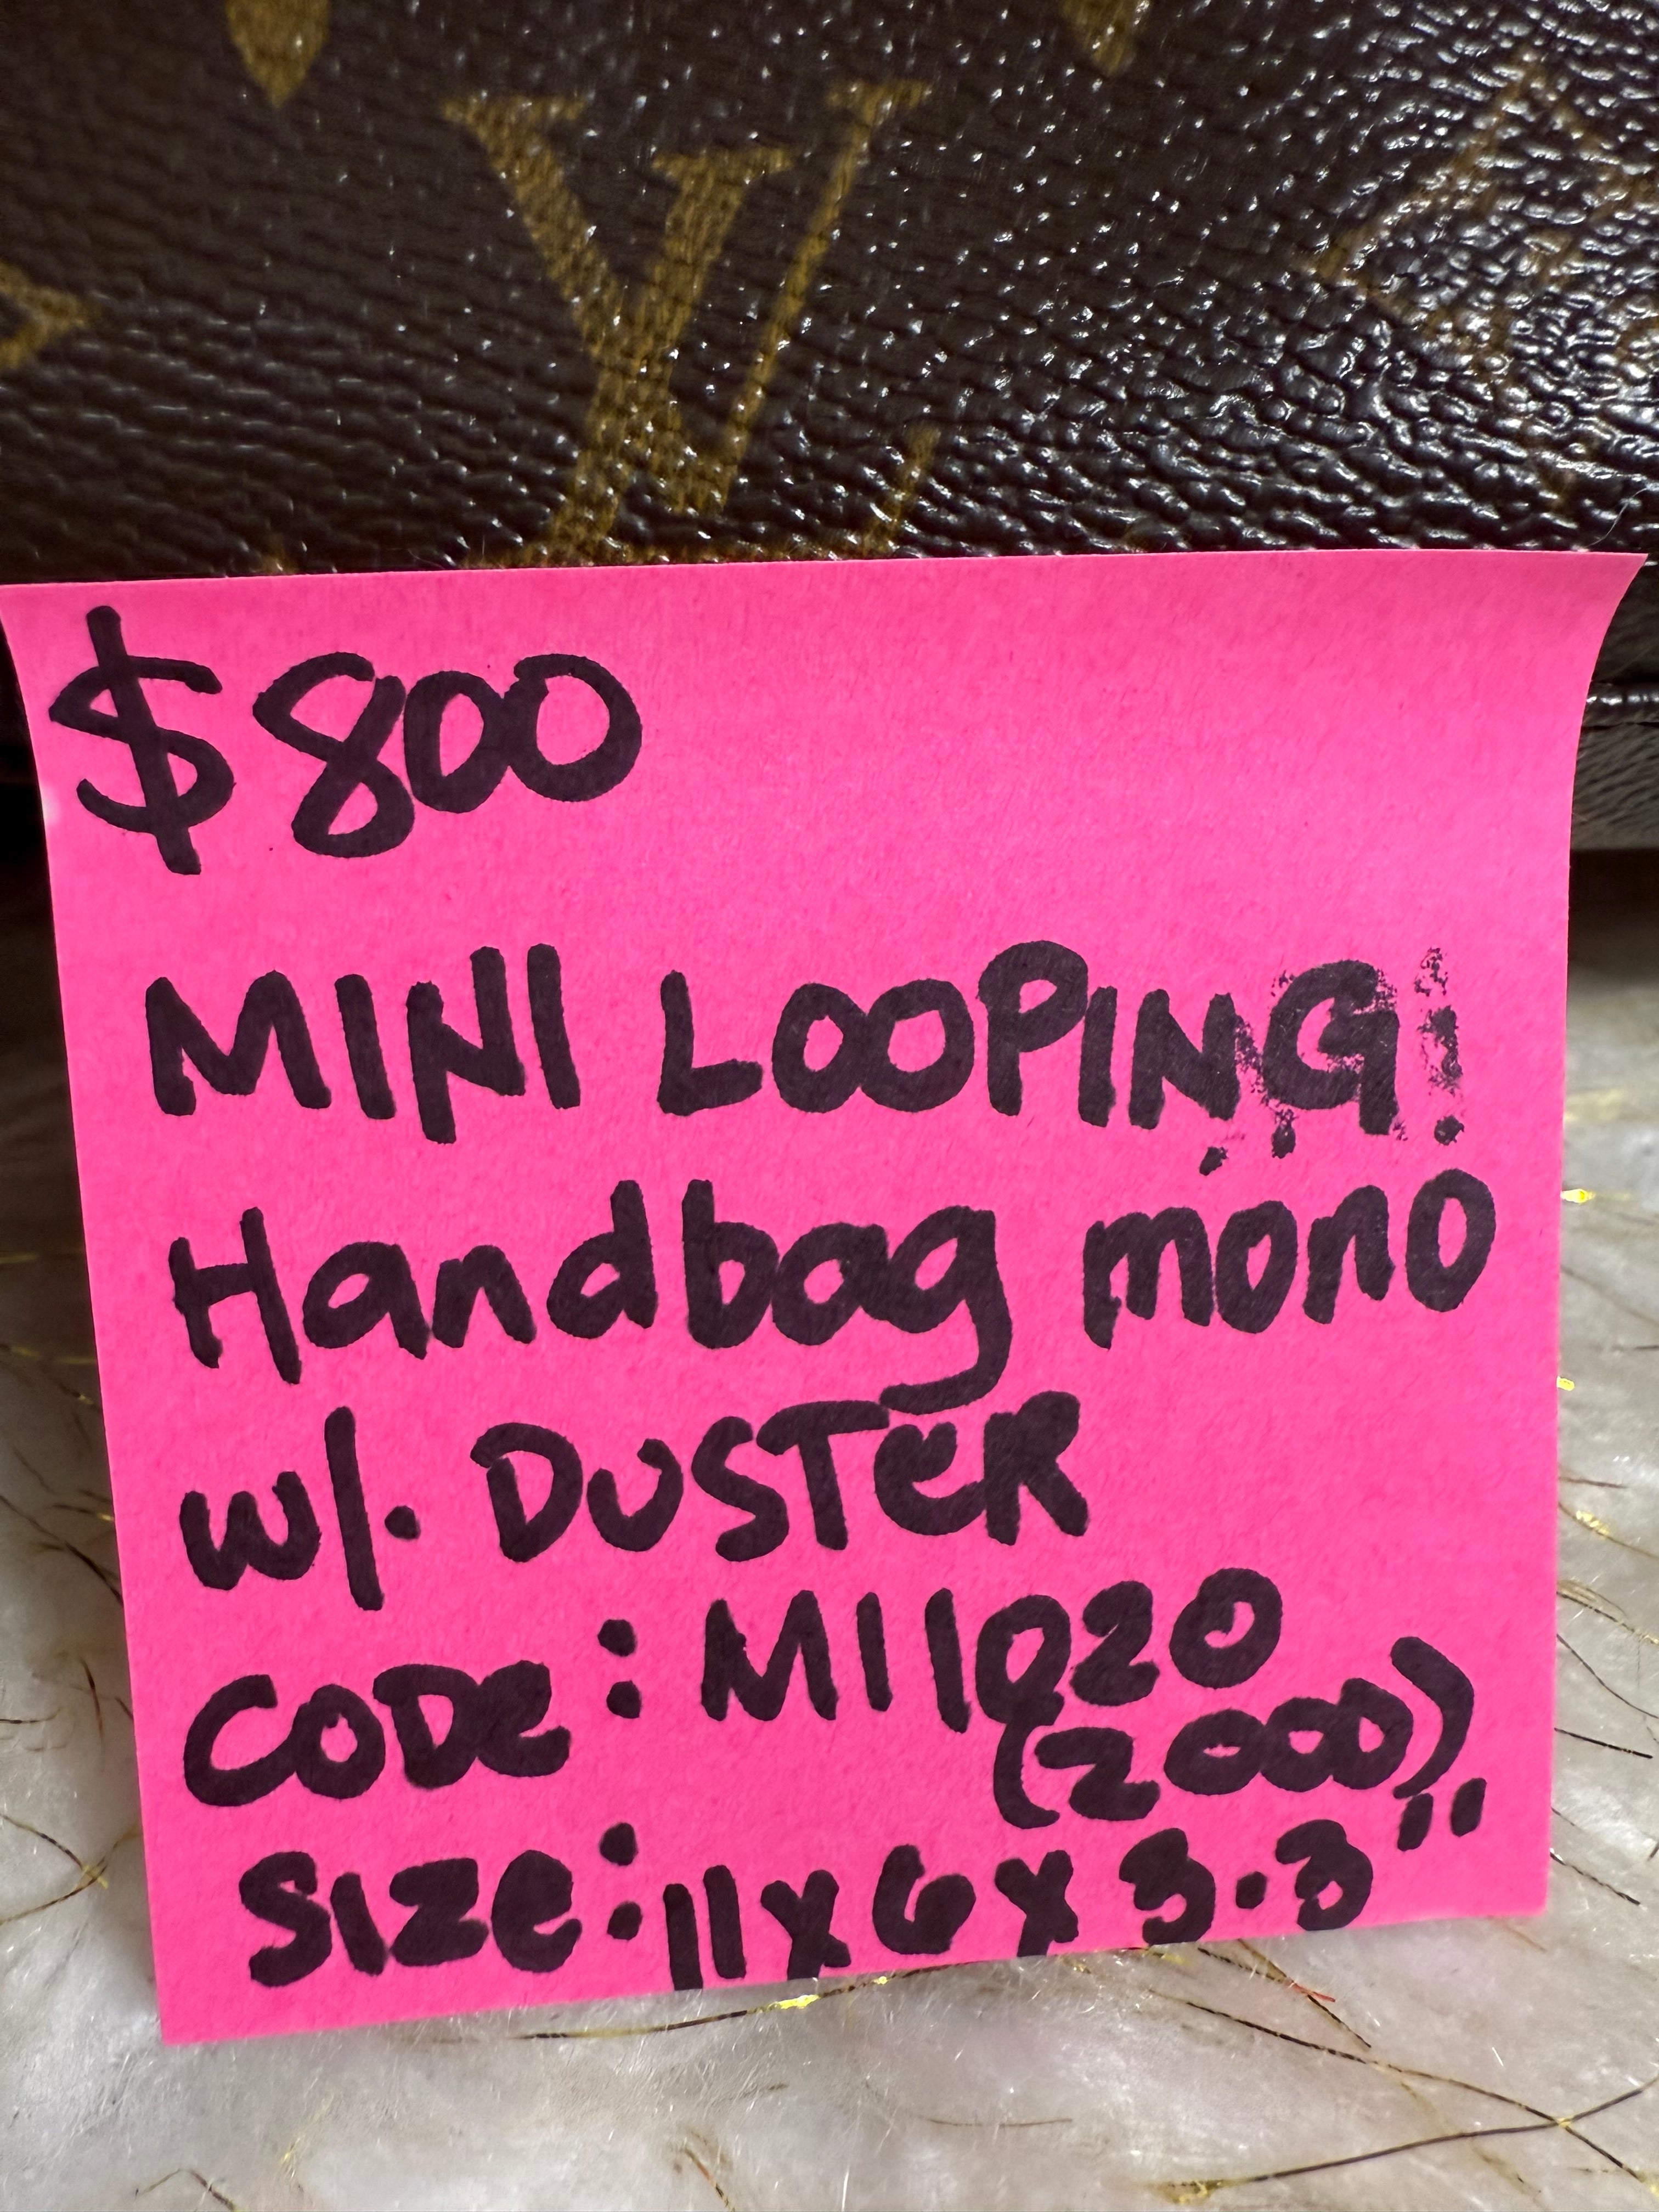 LV
$800
MINI LOOPING!
Handbag mono
w/. DUSTeR
CODe: MI1020
(2000)
SIZe: 11x6x3.3"